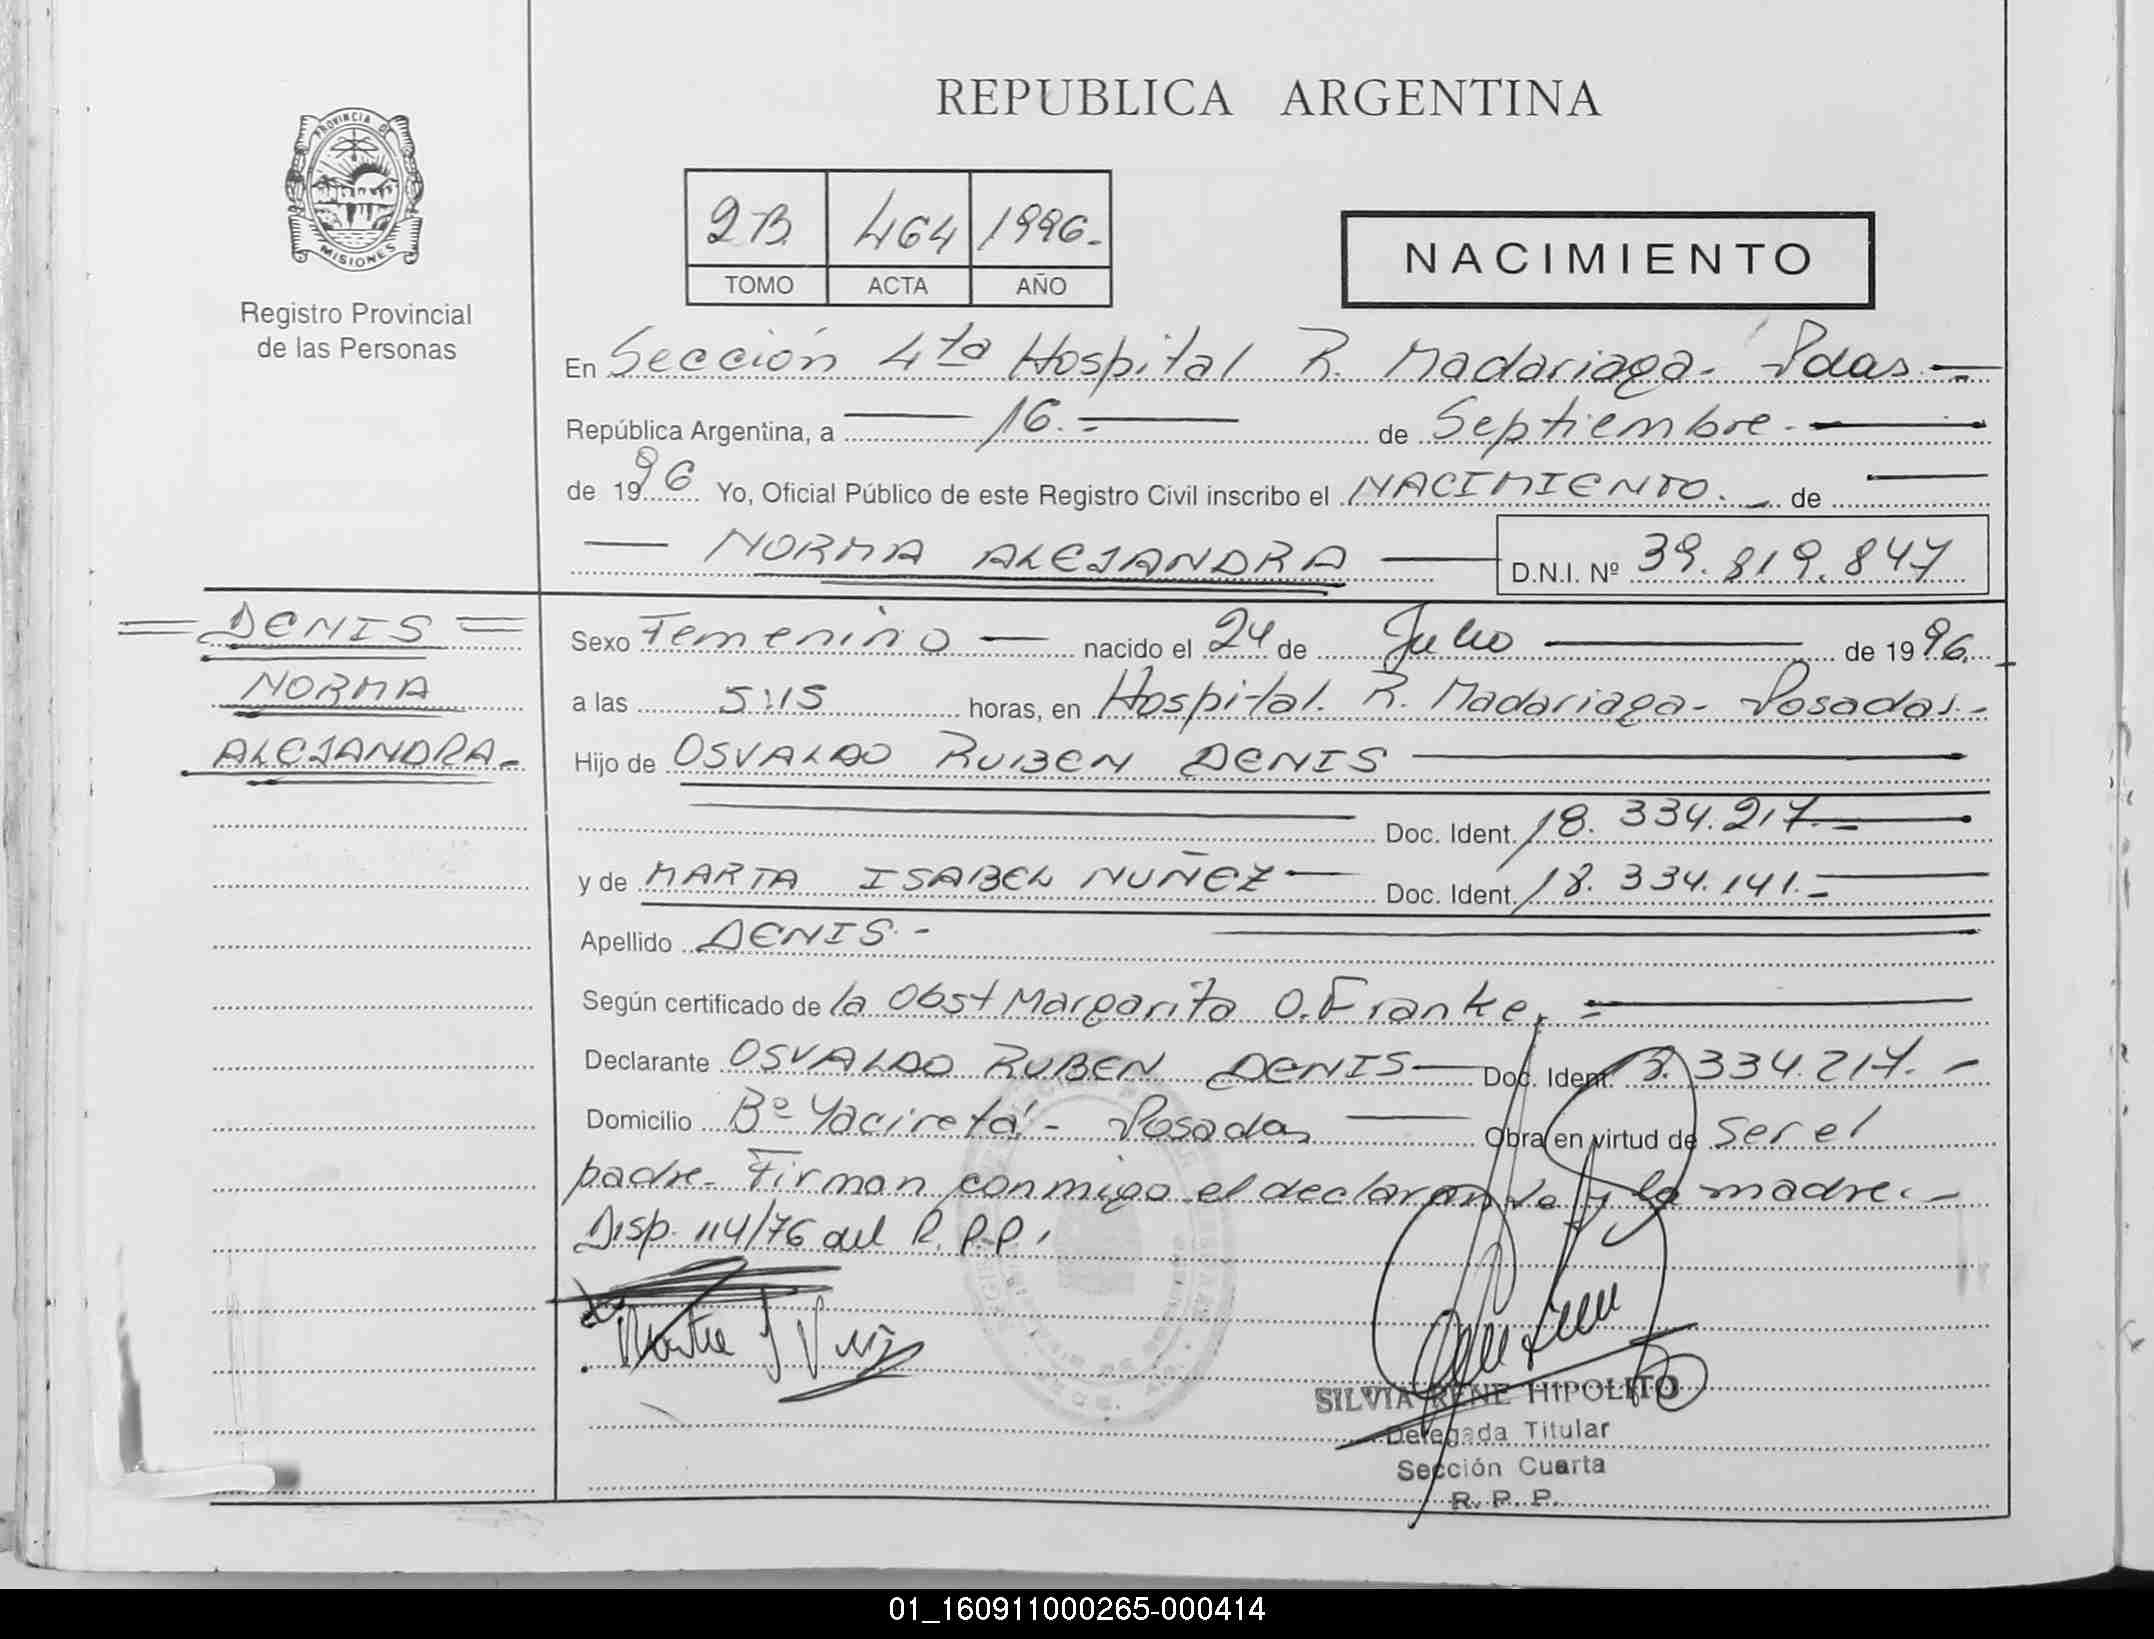 REPUBLICA ARGENTINA
PROVINCIA DE
MISIONES
Registro Provincial
de las Personas
2B 464 1996.-
TOMO ACTA AÑO
NACIMIENTO
En Sección 4ta Hospital R. Madariaga- Pdas.-
República Argentina, a 16.- de Septiembre.-
de 1996 Yo, Oficial Público de este Registro Civil inscribo el NACIMIENTO.- de
NORMA ALEJANDRA D.N.I. Nº 39.819.847
DENIS
NORMA
ALEJANDRA.-
Sexo Femenino nacido el 24 de Julio de 1996.
a las 5:15 horas, en Hospital. R. Madariaga- Posadas.-
Hijo de OSVALDO RUBEN DENIS
Doc. Ident. 18.334.217.-
y de MARTA ISABEL NUÑEZ Doc. Ident. 18.334.141.-
Apellido DENIS.-
Según certificado de la Obst Margarita O. Franke.-
Declarante OSVALDO RUBEN DENIS Doc. Ident. 18.334.217.-
Domicilio Bº Yaciretá - Posadas Obra en virtud de ser el
padre- Firman conmigo el declarante y la madre.-
Disp. 114/76 del R.P.P.
SILVIA RENE HIPOLITO
Delegada Titular
Sección Cuarta
R. P. P.
01_160911000265-000414